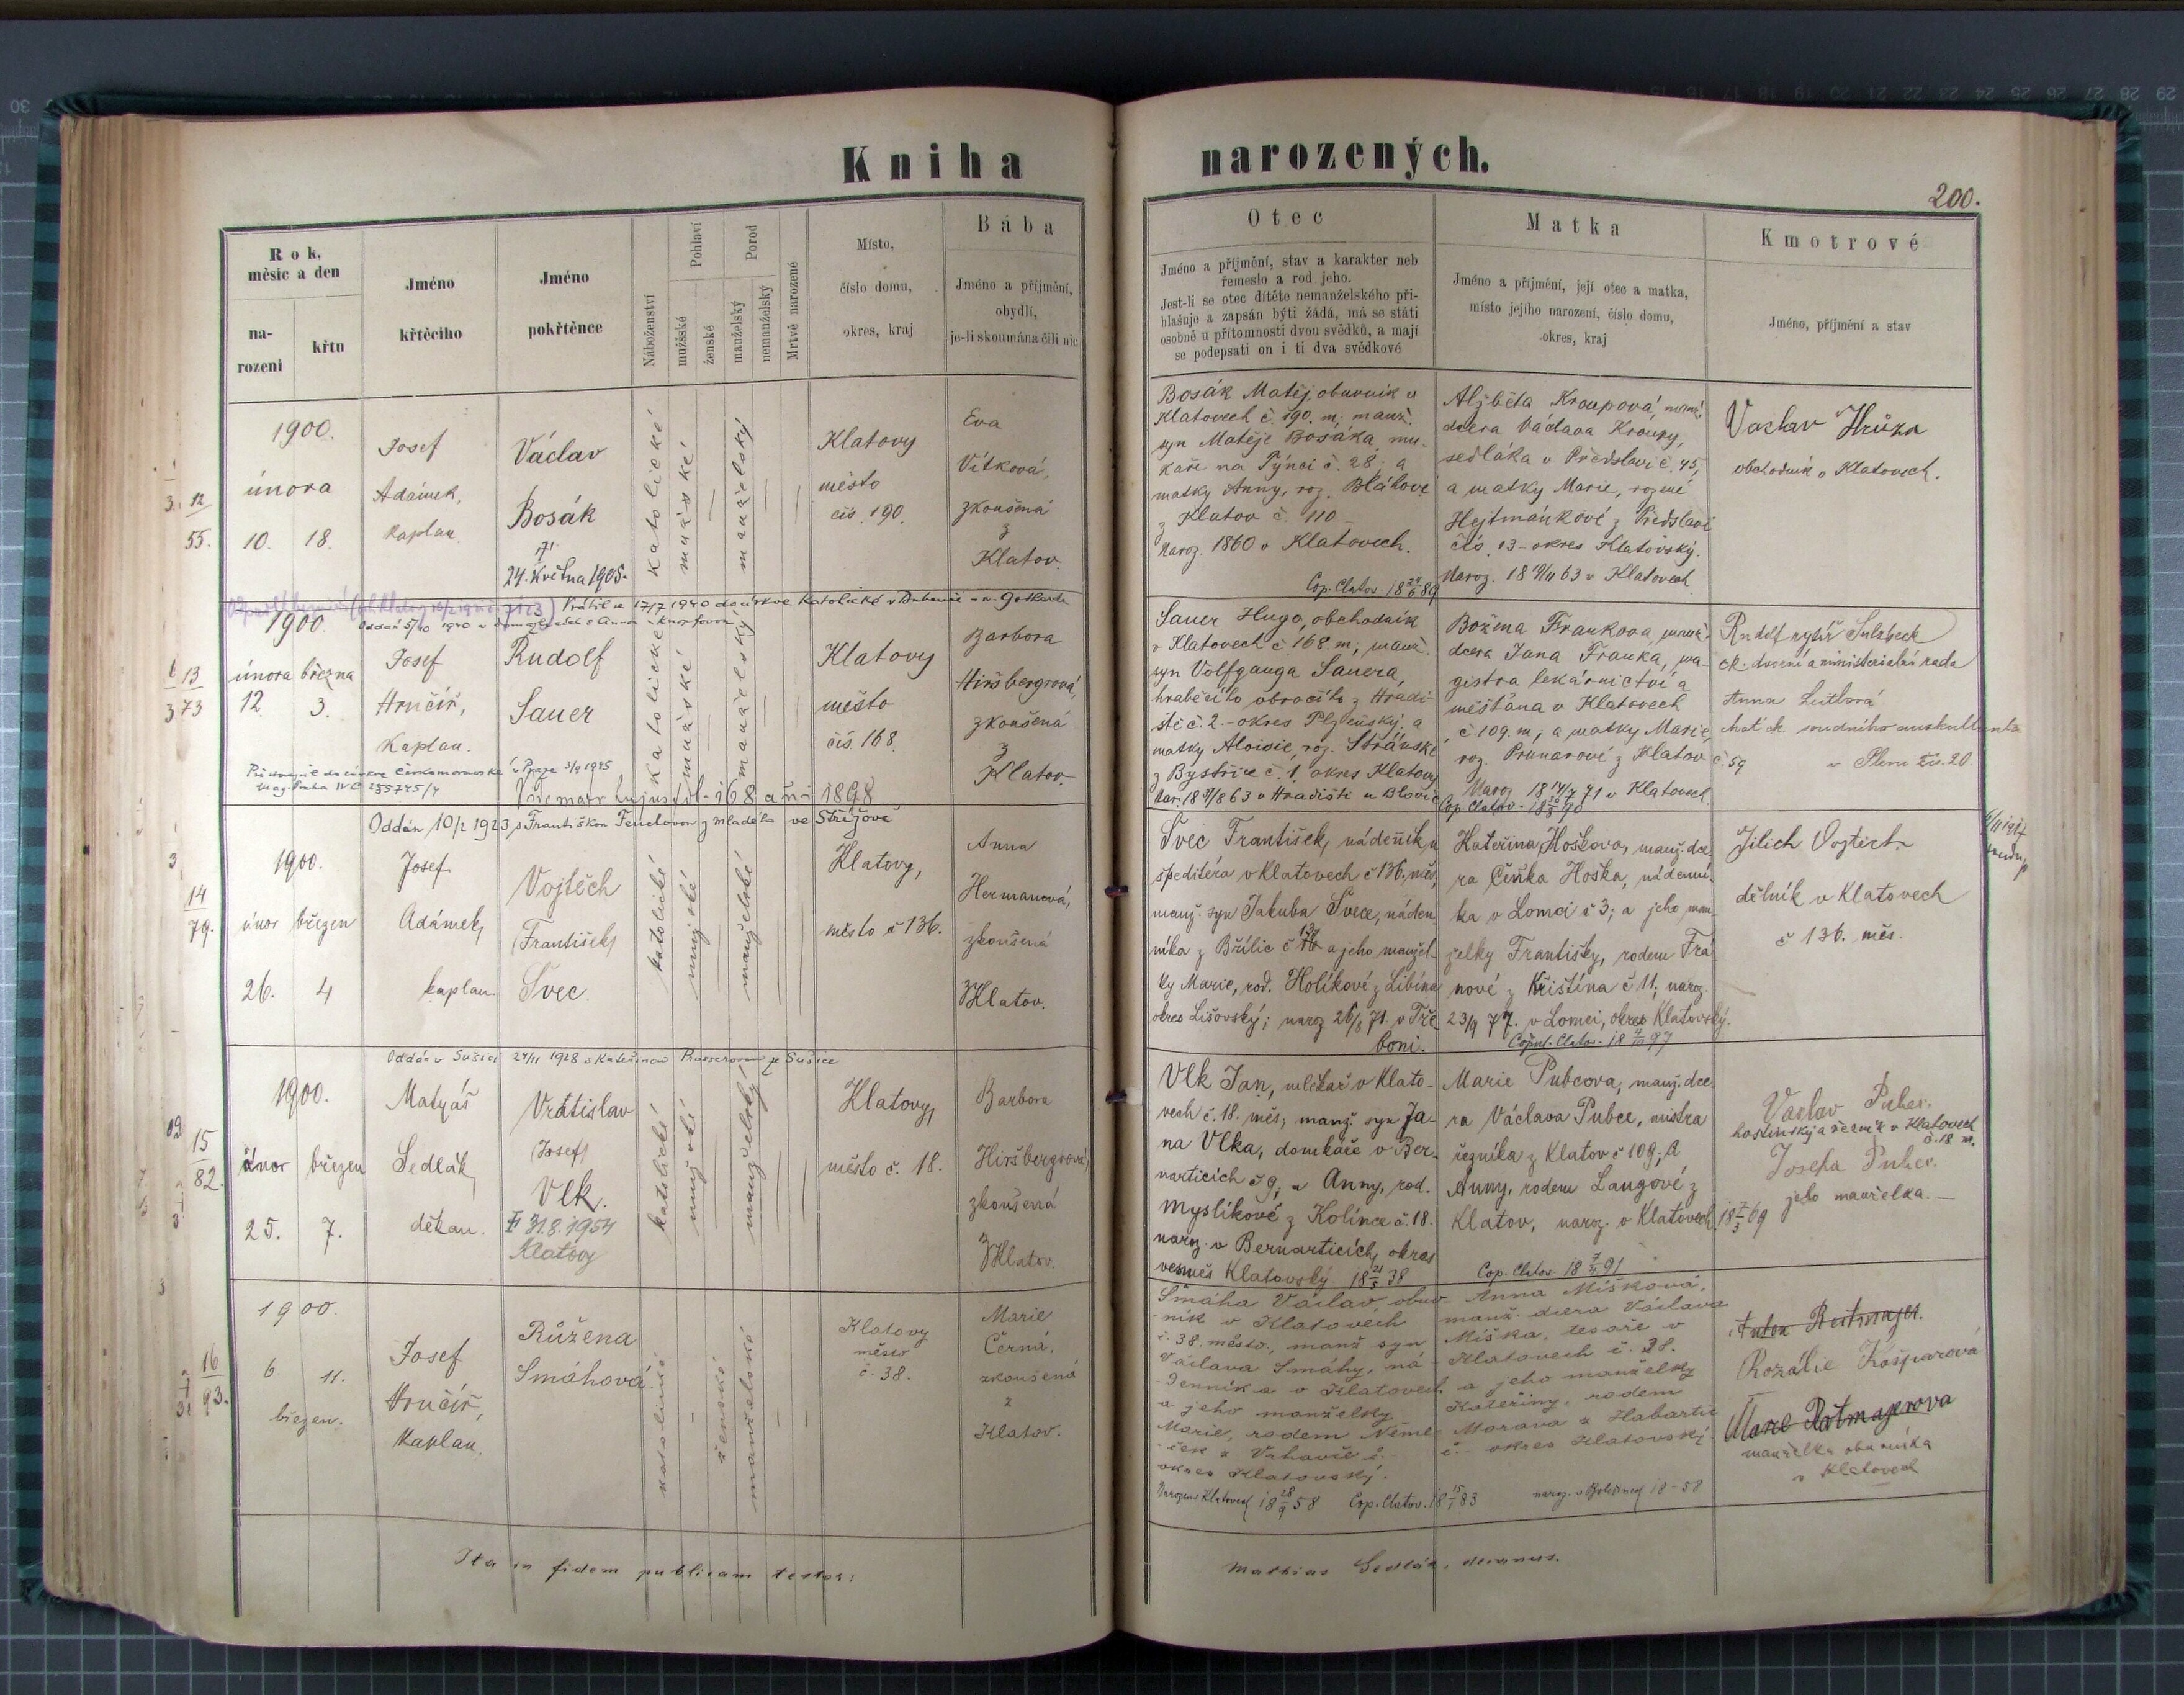 Kniha narozených.
200.
Rok, měsíc a den
na-
rození
křtu
Jméno
křtěcího
Jméno
pokřtěnce
Náboženství
Pohlaví
mužšké
ženské
Porod
manželský
nemanželský
Mrtvě narozené
Místo,
číslo domu,
okres, kraj
Bába
Jméno a příjmění,
obydlí,
je-li skoumána čili nic
Otec
Jméno a příjmění, stav a karakter neb
řemeslo a rod jeho.
Jest-li se otec dítěte nemanželského při-
hlašuje a zapsán býti žádá, má se státi
osobně u přítomnosti dvou svědků, a mají
se podepsati on i ti dva svědkové
Matka
Jméno a příjmění, její otec a matka,
místo jejího narození, číslo domu,
okres, kraj
Kmotrové
Jméno, příjmění a stav
12
55.
1900.
února
10. 18.
Josef
Adámek,
Kaplan.
Václav
Bosák
24. května 1905.
katolické
mužské
manželský
Klatovy
město
čís. 190.
Eva
Vítková,
zkoušená
z
Klatov.
Bosák Matěj, obuvník v
Klatovech č. 190. m; manž.
syn Matěje Bosáka,
na Týnci č. 28; a
matky Anny, roz. Bláhové
z Klatov č. 110
Naroz. 1860 v Klatovech.
Cop. Clatov. 18 24/6 89
Alžběta Kroupová, manž.
dcera Václava Kroupy,
sedláka v Předslavi č. 45,
a matky Marie, rozené
Hejtmánkové z Předslavi
čís. 13 - okres Klatovský.
Naroz. 18 19/11 63 v Klatovech
Vaclav Hrůza
obchodník v Klatovech.
Vrátil se 17/7 1940 do církve katolické v Bubenči u sv. Gotharda
13
73
1900.
února března
12. 3.
Josef
Hručíř,
Kaplan.
Rudolf
Sauer
katolické
mužské
manželský
Klatovy
město
čís. 168.
Barbora
Hiršbergrová,
zkoušená
z
Klatov.
Sauer Hugo, obchodník
v Klatovech č. 168. m, manž.
syn Volfganga Sauera,
hraběcího obročího z Hradi-
ště č. 2. - okres Plzeňský, a
matky Aloisie, roz. Stránské
z Bystřice č. 1. okres Klatovy
Nar. 18 31/8 63 v Hradišti u Blovic
Božena Frankova, manž.
dcera Jana Franka, ma-
gistra lekárnictví a
měšťana v Klatovech
č. 109. m; a matky Marie
roz. Prunarové z Klatov č. 59
Naroz 18 14/7 71 v Klatovech.
Rudolf rytíř Sulzbeck
ck. dvorní a ministerialní rada
Anna Luttová
choť ck. soudního auskultanta
v Plzni čís. 20
Přistoupil do církve Českomoravské v Praze 3/9 1925
mag. Praha IV C 255745/4
Oddán 10/2 1923 s Františkou Fenclovou z Mladého ve Strážově
14
79.
1900.
únor březen
26. 4
Josef
Adámek,
kaplan.
Vojtěch
(František)
Švec.
katolické
mužské
manželské
Klatovy,
město č 136.
Anna
Hermanová,
zkoušená
z Klatov.
Švec František, nádeník u
špeditéra v Klatovech č 136. měs,
manž. syn Jakuba Švece, náden-
níka z Břílic č 137 a jeho manžel-
ky Marie, rod. Holíkové z Libína
okres Lišovský; naroz 26/8 71. v Tře-
boni.
Kateřina Hoškova, manž. dce-
ra Čeňka Hoška, nádenní-
ka v Lomci č 3; a jeho man-
želky Františky, rodem Frá-
nové z Křištína č 11; naroz.
23/9 77. v Lomci, okres Klatovský.
Copul. Clatov. 18 4/10 97
Jilich Vojtěch
dělník v Klatovech
č 136. měs.
Oddán v Sušici 24/11 1928 s Kateřinou ze Sušice
15
82.
1900.
únor březen
25. 7.
Matyáš
Sedlák,
děkan.
Vratislav
(Josef)
Vlk.
31.8.1954
Klatovy
katolické
mužské
manželský
Klatovy,
město č. 18.
Barbora
Hiršbergrová,
zkoušená
z Klatov.
Vlk Jan, mlékař v Klato-
vech č. 18. měs; manž. syn Ja-
na Vlka, domkáře v Ber-
narticích č 9, a Anny, rod.
Myslíkové z Kolince č. 18.
naroz. v Bernarticích, okres
vesměs Klatovský 18 21/5 38
Marie Pubcova, manž. dce-
ra Václava Pubce, mistra
řezníka z Klatov č 109; a
Anny, rodem Langové z
Klatov, naroz. v Klatovech 18 7/3 69
Cop. Clatov. 18 7/4 91
Vaclav Pubec.
hostinský a řezník v Klatovech
č. 18 m.
Josefa Pubec.
jeho manželka.
16
93.
1900.
6 11.
březen.
Josef
Hručíř,
Kaplan.
Růžena
Smáhová.
katolické
ženské
manželské
Klatovy
město
č. 38.
Marie
Černá,
zkoušená
z
Klatov.
Šmáha Václav, obuv-
ník v Klatovech
č. 38. město, manž syn
Václava Smáhy, ná-
denníka v Klatovech
a jeho manželky
Marie, rodem Něme-
ček z Vrhavče č. -
okres Klatovský.
Narozen v Klatovech 18 28/9 58 Cop. Clatov. 18 15/1 83
Anna Míšková,
manž. dcera Václava
Míška, tesaře v
Klatovech č. 38.
a jeho manželky
Kateřiny, rodem
Morava z Habartic
č. - okres Klatovský.
Rozálie Kašparová
manželka obuvníka
v Klatovech
Ita in fidem publicam testor:
Mathias Sedlák, decanus.